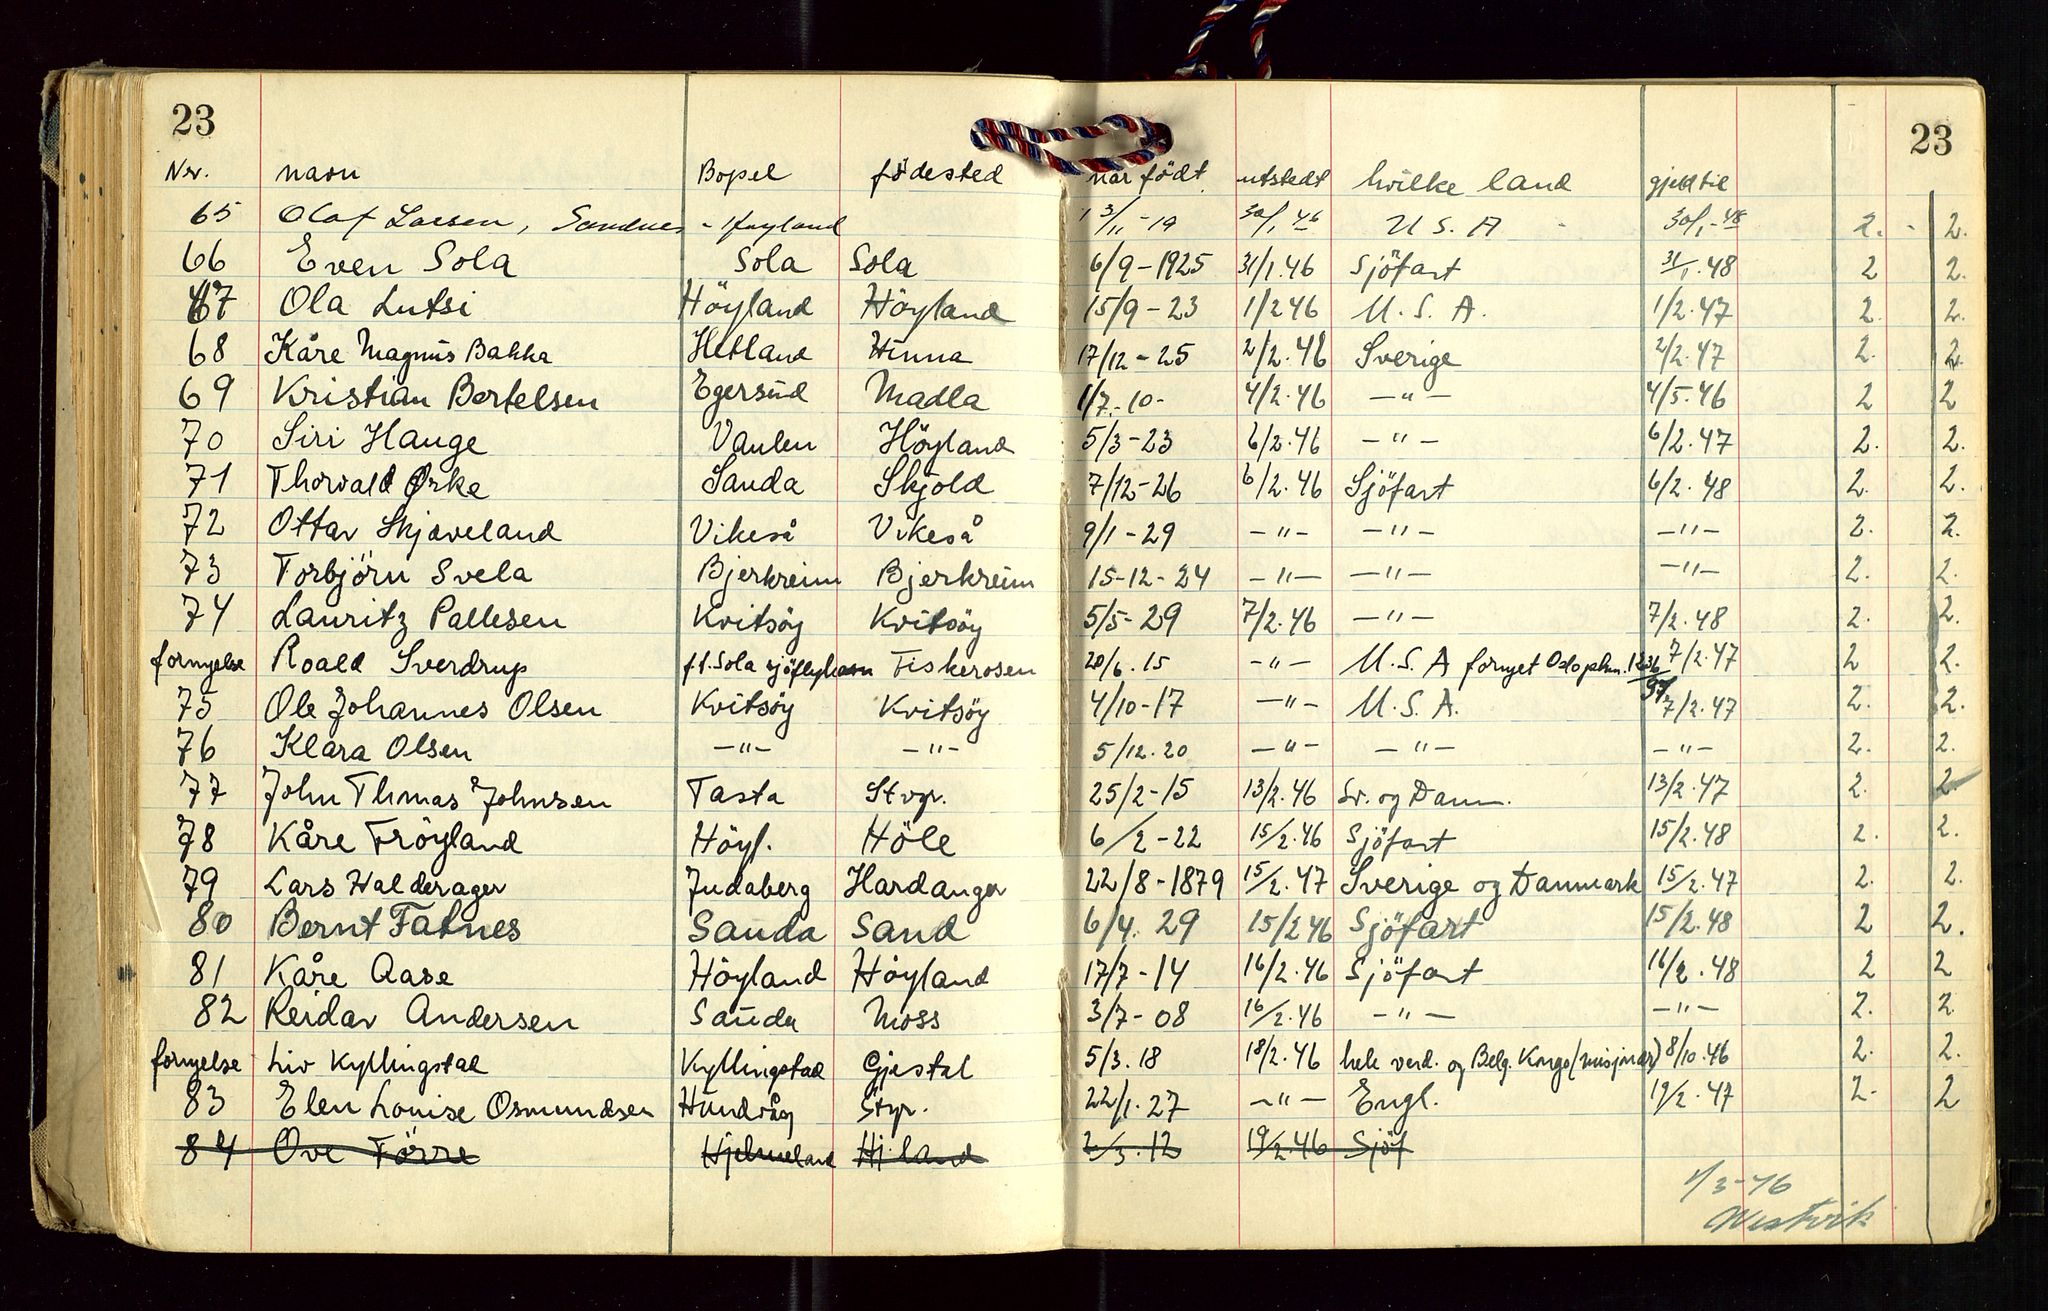 23 23
Nr. navn Bopel födested når födt utstedt hvilke land gjeld til
65 Olaf Larsen, Sandnes - Høyland 1 3/11-19 30/1 46 U S. A 30/1-48 2. 2.
66 Even Sola Sola Sola 6/9-1925 31/1.46 Sjöfart 31/1.48 2 2.
67 Ola Lutsi Höyland Höyland 15/9-23 1/2 46 U. S. A. 1/2.47 2. 2.
68 Kåre Magnus Bakka Hetland Hinna 17/12-25 2/2.46 Sverige 2/2.47 2. 2.
69 Kristian Bertelsen Egersund Madla 1/7.-10- 4/2.46 -"- 4/5.46 2 2
70 Siri Hauge Vaulen Höyland 5/3-23 6/2.46 -"- 6/2.47 2. 2.
71 Thorvald Ørke Sauda Skjold 7/12-26 6/2.46 Sjöfart 6/2.48 2. 2.
72 Ottar Skjæveland Vikeså Vikeså 9/1-29 -"- -"- -"- 2. 2.
73 Torbjörn Svela Bjerkreim Bjerkreim 15-12-24 -"- -"- -"- 2. 2.
74 Lauritz Pallesen Kvitsöy Kvitsöy 5/5-29 7/2.46 -"- 7/2.48 2. 2.
fornyelse Roald Sverdrup f.t. Sola sjöflyhavn Fiskerosen 20/6.15 -"- U. S. A fornyet Oslo 7/2.47 2 2.
75 Ole Johannes Olsen Kvitsöy Kvitsöy 4/10-17 -"- U. S. A. 7/2.47 2. 2.
76 Klara Olsen -"- -"- 5/12.20 -"- -"- -"- 2. 2.
77 John Thmas Johnsen Tasta Stvgr. 25/2-15 13/2.46 Sv. og Danm. 13/2.47 2. 2
78 Kåre Fröyland Höyl. Höle 6/2-22 15/2.46 Sjöfart 15/2.48 2. 2.
79 Lars Halderager Judaberg Hardanger 22/8-1879 15/2.47 Sverige og Danmark 15/2.47 2. 2.
80 Bernt Fatnes Sauda Sand 6/4.29 15/2 46 Sjöfart 15/2.48 2 2.
81 Kåre Aase Höyland Höyland 17/7-14 16/2.46 Sjöfart 16/2.48 2 2
82 Reidar Andersen Sauda Moss 3/7-08 16/2.46 -"- -"- 2. 2
fornyelse Liv Kyllingstad Kyllingstad Gjestal 5/3.18 18/2.46 hele verd. og Belg. Kongo (misjonær) 8/10.46 2. 2.
83 Elen Louise Osmundsen Hundvåg Stvgr. 22/1.27 -"- Engl. 19/2.47 2. 2
84 Ove Törre Hjelmeland Hj.land 2/3.12 19/2.46 Sjöf
1/3-46
Westvik